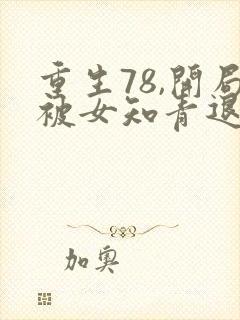 重生78,開局
被女知青退
加奥